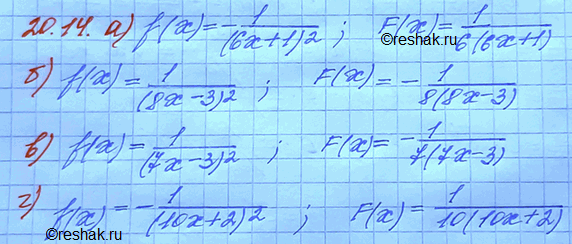 20.14. а) f(x)=-1/(6x+1)²; F(x)=1/6(6x+1)
©reshak.ru
б) f(x)=1/(8x-3)²; F(x)=-1/8(8x-3)
в) f(x)=1/(7x-3)²; F(x)=-1/7(7x-3)
г) f(x)=-1/(10x+2)²; F(x)=1/10(10x+2)
©reshak.ru